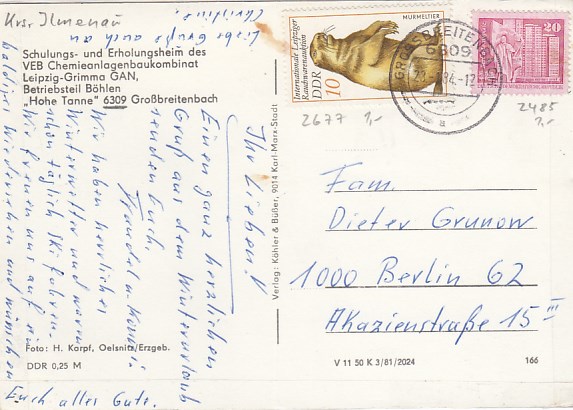 Krs. Ilmenau
Schulungs- und Erholungsheim des
VEB Chemieanlagenbaukombinat
Leipzig-Grimma GAN,
Betriebsteil Böhlen
„Hohe Tanne" 6309 Großbreitenbach
Ihr Lieben!
Einen ganz herzlichen
Gruß aus dem Winterurlaub
senden Euch
Traudel u.
Wir haben herrliches
Winterwetter und waren
schon täglich Ski fahren.
Wir freuen uns auf ein
baldiges Wiedersehen und wünschen
Euch alles Gute.
Liebe Grüße
auch an
Christine.
Foto: H. Karpf, Oelsnitz/Erzgeb.
DDR 0,25 M
Verlag: Köhler & Büßer, 9014 Karl-Marx-Stadt
Internationale Leipziger
Rauchwarenauktion
DDR
10
MURMELTIER
GROSSBREITENBACH
6309
20
2677 1,-
2485
1,-
Fam.
Dieter Grunow
1000 Berlin 62
Akazienstraße 15 III
V 11 50 K 3/81/2024
166